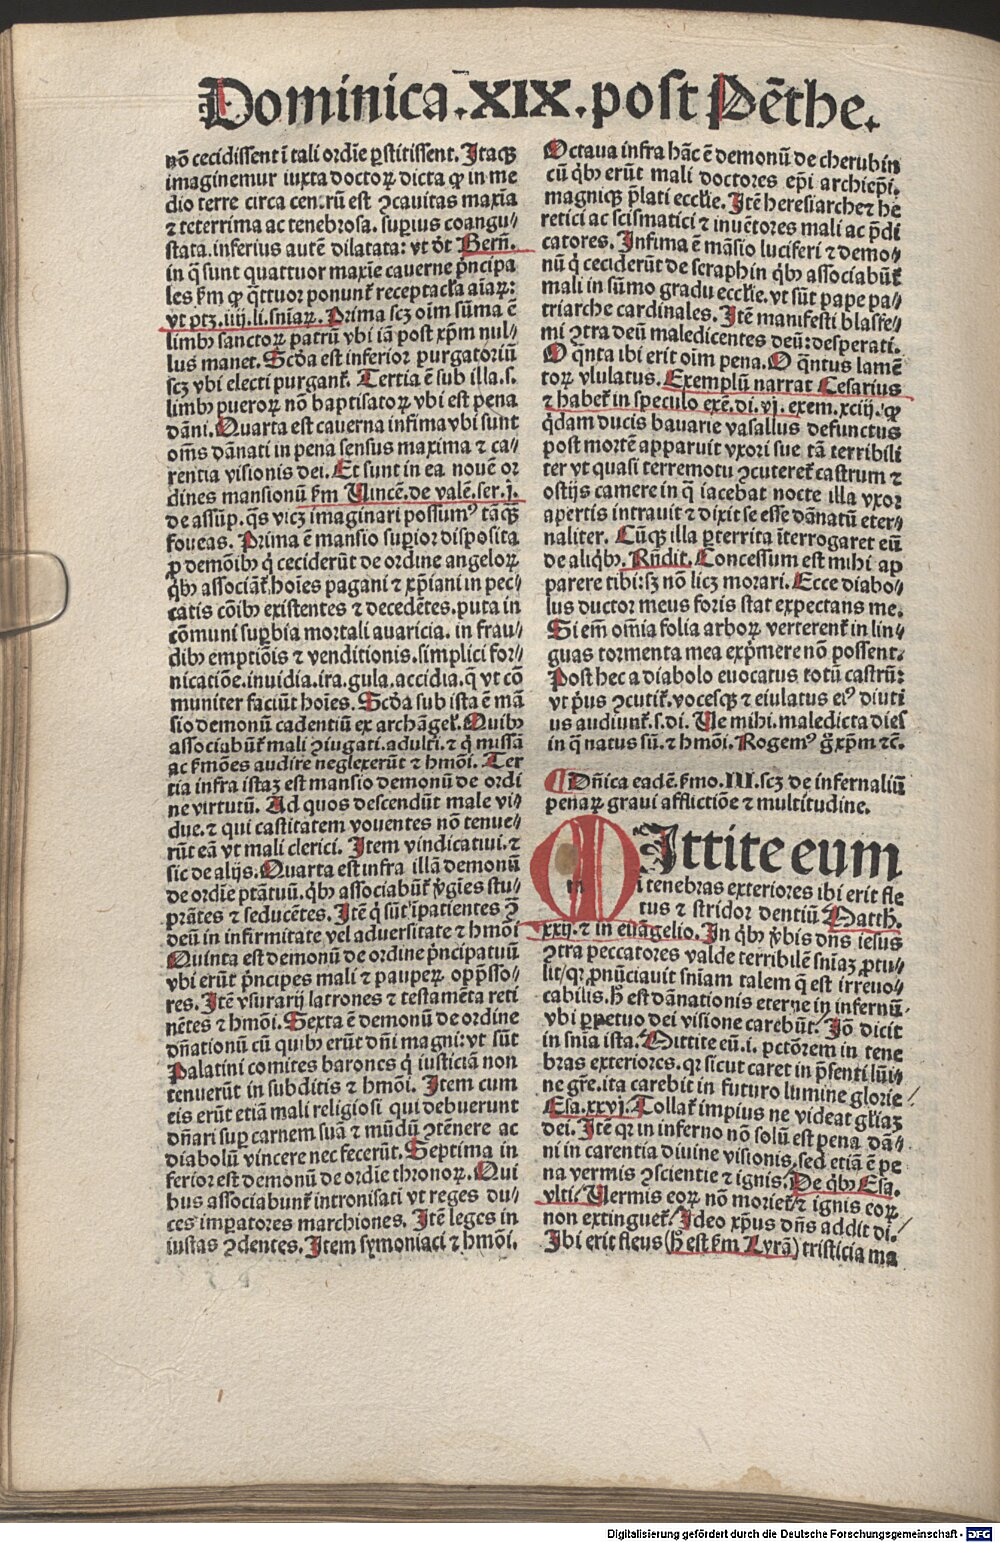 Dominica.XIX.post Pẽthe.
nõ cecidissent ĩ tali ordĩe ꝑstitissent. Itaqꝫ
imaginemur iuxta doctoꝝ dicta ꝙ in me
dio terre circa centrũ est ꝯcauitas maxĩa
⁊ teterrima ac tenebrosa. supius coangu⸗
stata. inferius autẽ dilatata: vt dr̃ Berñ.
in q̃ sunt quattuor maxĩe cauerne p̃ncipa
les ẜm ꝙ q̃ttuor ponunt᷑ receptacl̃a aĩaꝝ:
vt ptꝫ.iiij.li.sniaꝝ. Prima scꝫ oĩm sũma ẽ
limbꝰ sanctoꝝ patrũ vbi iã post xp̃m nul⸗
lus manet. Scḋa est inferior purgatoriũ
scꝫ vbi electi purgant᷑. Tertia ẽ sub illa.s.
limbꝰ pueroꝝ nõ baptisatoꝝ vbi est pena
dãni. Quarta est cauerna infima vbi sunt
om̃s dãnati in pena sensus maxima ⁊ ca⸗
rentia visionis dei. Et sunt in ea nouẽ or
dines mansionũ ẜm Vincẽ.de valẽ.ser.j.
de assũp. q̃s vicꝫ imaginari possumꝰ tãqꝫ
foueas. Prima ẽ mansio supior disposita
ꝓ demõibꝰ q̇ ceciderũt de ordine angeloꝝ
q̇bꝰ associãt᷑ hoĩes pagani ⁊ xp̃iani in pec⸗
catis cõibꝰ existentes ⁊ decedẽtes. puta in
cõmuni supbia mortali auaricia. in frau⸗
dibꝰ emptiõis ⁊ venditionis. simplici for⸗
nicatiõe. inuidia. ira. gula. accidia. q̃ vt cõ
muniter faciũt hoĩes. Scḋa sub ista ẽ mã
sio demonũ cadentiũ ex archãgel᷑. Quibꝰ
associabũt᷑ mali ꝯiugati. adulti. ⁊ q̇ missã
ac ẜmões audire neglexerũt ⁊ hmõi. Ter
tia infra istaꝫ est mansio demonũ de ordi
ne virtutũ. Ad quos descendũt male vi⸗
due. ⁊ qui castitatem vouentes nõ tenue⸗
rũt eã vt mali clerici. Item vindicatiui. ⁊
sic de alijs. Quarta est infra illã demonũ
de ordĩe ptãtuũ. q̇bꝰ associabũt᷑ ṽgies stu⸗
prãtes ⁊ seducẽtes. Itẽ q̇ sũt ĩpatientes ꝯ̃
deũ in infirmitate vel aduersitate ⁊ hmõi
Quinta est demonũ de ordine p̃ncipatuũ
vbi erũt p̃ncipes mali ⁊ paupeꝝ opp̃sso⸗
res. Itẽ vsurarij latrones ⁊ testamẽta reti
nẽtes ⁊ hmõi. Sexta ẽ demonũ de ordine
dñationũ cũ quibꝰ erũt dñi magni: vt sũt
Palatini comites barones q̇ iusticiã non
tenuerũt in subditis ⁊ hmõi. Item cum
eis erũt etiã mali religiosi qui debuerunt
dñari sup carnem suã ⁊ mũdũ ꝯtẽnere ac
diabolũ vincere nec fecerũt. Septima in
ferior est demonũ de ordĩe thronoꝝ. Qui
bus associabunt᷑ intronisati vt reges du⸗
ces impatores marchiones. Itẽ leges in
iustas ꝯdentes. Item symoniaci ⁊ hmõi.
Octaua infra hãc ẽ demonũ de cherubin
cũ q̇bꝰ erũt mali doctores ep̃i archiep̃i.
magniqꝫ p̃lati eccl̃ie. Itẽ heresiarche ⁊ he
retici ac scismatici ⁊ inuẽtores mali ac p̃di
catores. Infima ẽ mãsio luciferi ⁊ demo⸗
nũ q̇ ceciderũt de seraphin q̇bꝰ associabũt᷑
mali in sũmo gradu eccl̃ie. vt sũt pape pa⸗
triarche cardinales. Itẽ manifesti blasfe⸗
mi ⁊ ꝯtra deũ maledicentes deũ: desperati.
O q̃nta ibi erit oĩm pena. O q̃ntus lamẽ
toꝝ vlulatus. Exemplũ narrat Cesarius
⁊ habet᷑ in speculo exẽ.di.vj. exem.xciij. ꝙ
q̇dam ducis bauarie vasallus defunctus
post mortẽ apparuit vxori sue tã terribili
ter vt quasi terremotu ꝯcuteret᷑ castrum ⁊
ostijs camere in q̃ iacebat nocte illa vxor
apertis intrauit ⁊ dixit se esse dãnatũ eter⸗
naliter. Cũqꝫ illa ꝑterrita ĩterrogaret eũ
de aliq̇bꝰ. Rñdit. Concessum est mihi ap
parere tibi: sꝫ nõ licꝫ morari. Ecce diabo⸗
lus ductor meus foris stat expectans me.
Si em̃ om̃ia folia arboꝝ verterent᷑ in lin⸗
guas tormenta mea exp̃mere nõ possent.
Post hec a diabolo euocatus totũ castrũ:
vt p̃us ꝯcutit᷑. vocesqꝫ ⁊ eiulatus eiꝰ diuti
us audiunt᷑. s.di. Ve mihi. maledicta dies
in q̃ natus sũ. ⁊ hmõi. Rogemꝰ g̃ xp̃m ⁊c̃.
¶ Dñica eadẽ ẜmo.III.scꝫ de infernaliũ
penaꝝ graui afflictiõe ⁊ multitudine.
MIttite eum
ĩ tenebras exteriores ibi erit fle
tus ⁊ stridor dentiũ Matth.
xxij. ⁊ in euãgelio. In q̇bꝰ ṽbis dñs iesus
ꝯtra peccatores valde terribilẽ sniaꝫ ꝓtu⸗
lit/ qꝛ ꝓnũciauit sniam talem q̃ est irreuo⸗
cabilis. h̃ est dãnationis eterne in infernũ.
vbi ꝑpetuo dei visione carebũt. Iõ dicit
in snia ista. Mittite eũ. i. pctõrem in tene
bras exteriores. qꝛ sicut caret in p̃senti lũi⸗
ne gr̃e. ita carebit in futuro lumine glorie
Esa.xxvj. Tollat᷑ impius ne videat gl̃iaꝫ
dei. Itẽ qꝛ in inferno nõ solũ est pena dã⸗
ni in carentia diuine visionis. sed etiã ẽ pe
na vermis ꝯscientie ⁊ ignis. De q̇bꝰ Esa.
vlti. Vermis eoꝝ nõ moriet᷑/ ⁊ ignis eoꝝ
non extinguet᷑/ Ideo xp̃us dñs addit di.
Ibi erit fleus (h̃ est ẜm Lyrã) tristicia ma
Digitalisierung gefördert durch die Deutsche Forschungsgemeinschaft - DFG